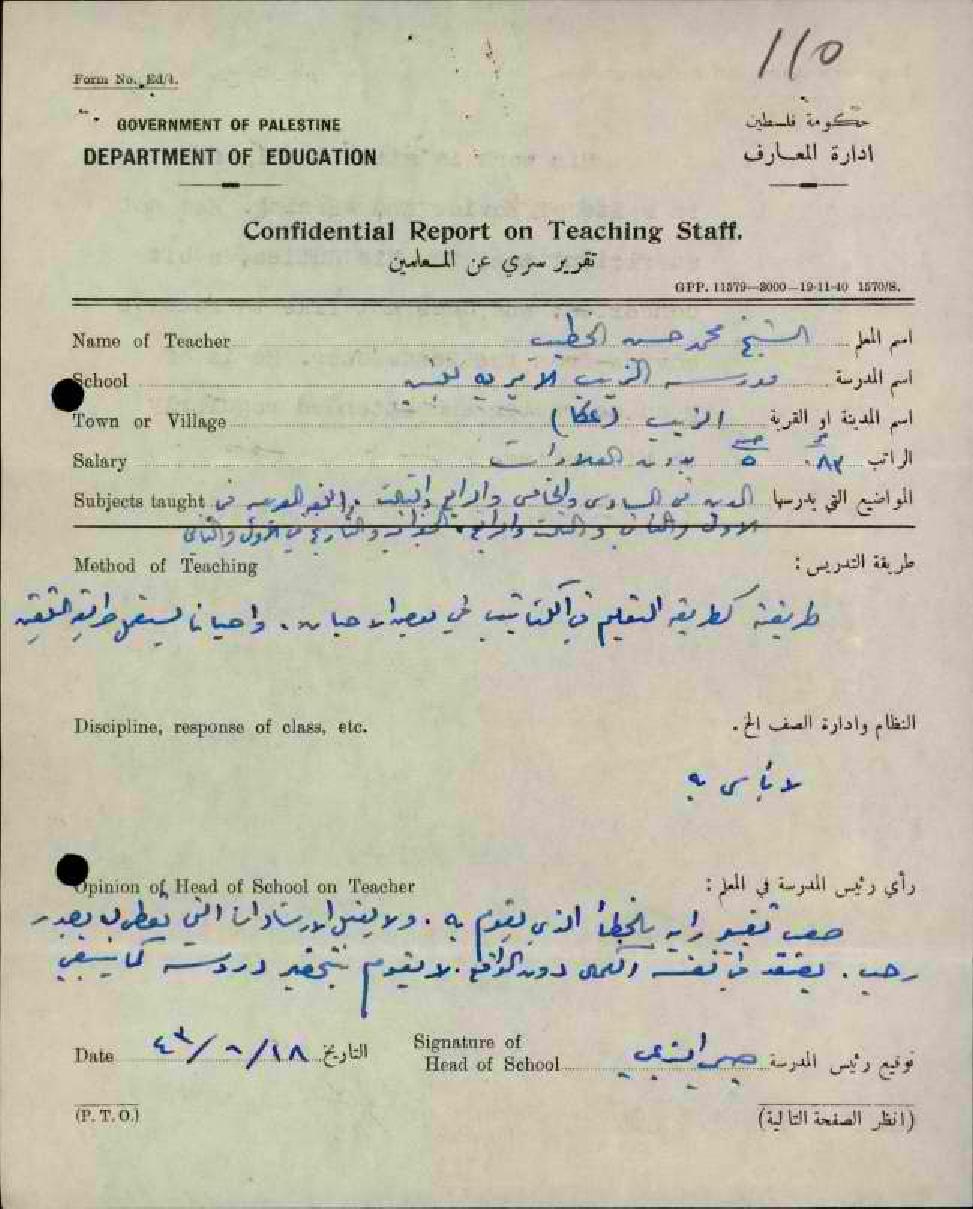 110
Form No. Ed/4.
GOVERNMENT OF PALESTINE
DEPARTMENT OF EDUCATION
حكومة فلسطين
ادارة المعارف
Confidential Report on Teaching Staff.
تقرير سري عن المعلمين
GPP. 11579—3000—19-11-40 1570/S.
Name of Teacher الشيخ محمد حسن الخطيب اسم المعلم
School مدرسة الزيب الاميرية للبنين اسم المدرسة
Town or Village الزيب (عكا) اسم المدينة او القرية
Salary ٨٣ ٥ بدون العلاوات الراتب
Subjects taught الدين في السادس والخامس والرابع والثالث في المواضيع التي يدرسها
الاول والثاني والثالث والرابع. والتاريخ في الاول والثاني
Method of Teaching طريقة التدريس :
طريقته كطريقة التعليم في الكتاتيب في بعض الاحيان. واحيانا يستعمل
Discipline, response of class, etc. النظام وادارة الصف الخ.
لا بأس به
Opinion of Head of School on Teacher رأي رئيس المدرسة في المعلم :
صعب تغيير رايه بالخطأ الذي يقوم به. ولا يقبل الارشادات التي تعطى له بصدر
رحب. يعتقد في نفسه الكمال دون. لا يقوم بتحضير دروسه كما ينبغي
Date ١٨/٨/٤٣ التاريخ
Signature of
Head of School توقيع رئيس المدرسة
(P. T. O.) (انظر الصفحة التالية)